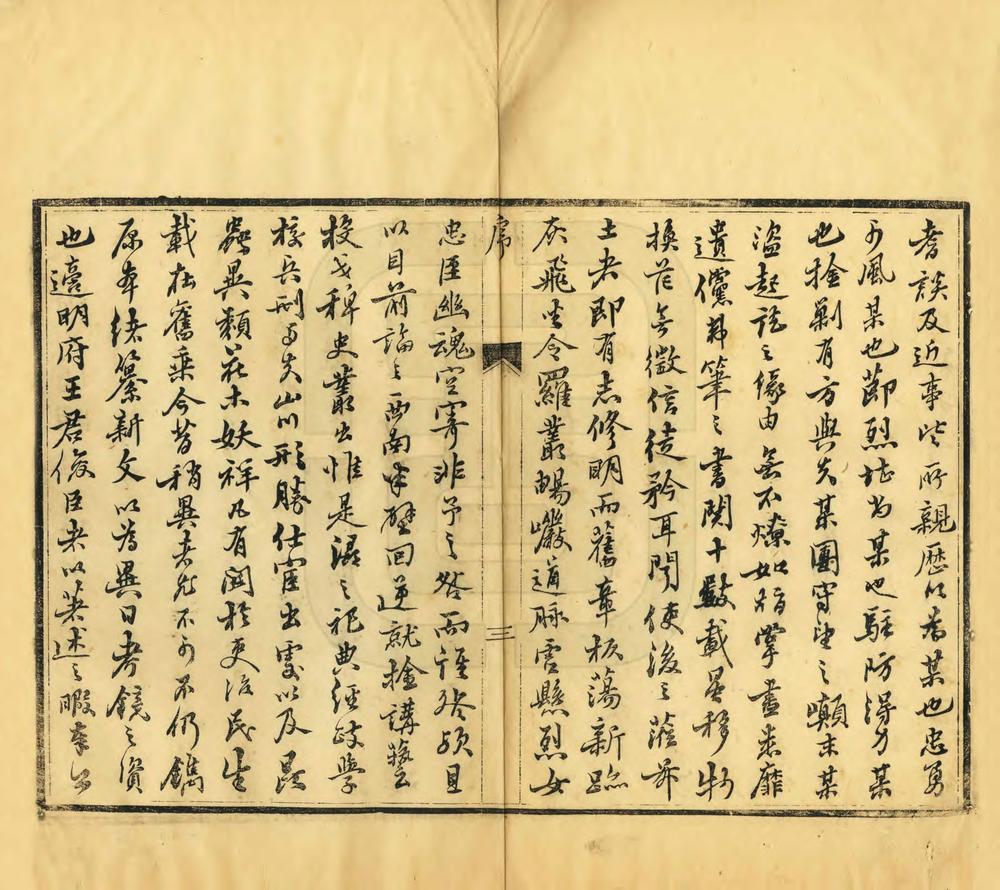 耆談及近事皆所親歷以爲某也忠勇
可風某也節烈堪爲某也駐防得力某
也捡剿有方與夫某團守望之顛末某
盜起訖之緣由無不燎如指掌盡悉靡
遺儻載筆之書閱十數載星移物
換茫無徵信徒矜耳聞使後之蒞斯
土者即有志修明而舊章板蕩新跡
灰飛坐令羅叢暢巖道脉雲懸烈女
序
三
忠臣幽魂空寄非予之咎而誰咎歟且
以目前論之西南半壁回逆就捡講藝
投戈稗史叢出惟是濕之祀典經政學
校兵刑與夫山川形勝仕宦出處以及昆
蟲異類花木妖祥凡有関於吏治民生
載在舊乘今昔稍異者尤不可不仍鐫
原本續纂新文以爲異日考鏡之資
也適明府王君俊臣者以著述之暇奉公